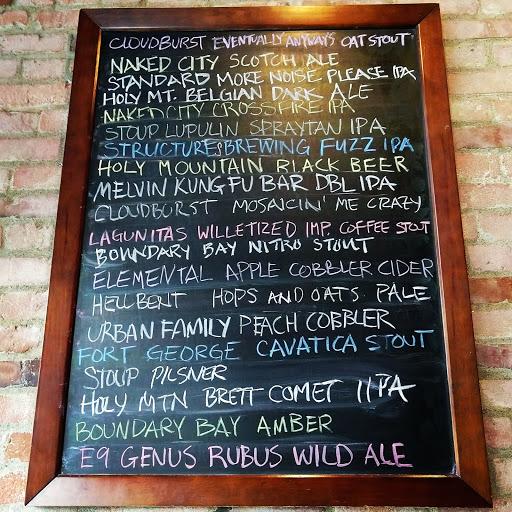 CLOUDBURST EVENTUALLY ANYWAYS OAT STOUT
NAKED CITY SCOTCH ALE
STANDARD MORE NOISE PLEASE IPA
HOLY MT. BELGIAN DARK ALE
NAKED CITY CROSSFIRE IPA
STOUP LUPULIN SPRAYTAN IPA
STRUCTURES BREWING FUZZ IPA
HOLY MOUNTAIN BLACK BEER
MELVIN KUNG FU BAR DBL IPA
CLOUDBURST MOSAICIN' ME CRAZY
LAGUNITAS WILLETIZED IMP. COFFEE STOUT
BOUNDARY BAY NITRO STOUT
ELEMENTAL APPLE COBBLER CIDER
HELLBENT HOPS AND OATS PALE
URBAN FAMILY PEACH COBBLER
FORT GEORGE CAVATICA STOUT
STOUP PILSNER
HOLY MTN BRETT COMET IIPA
BOUNDARY BAY AMBER
E9 GENUS RUBUS WILD ALE